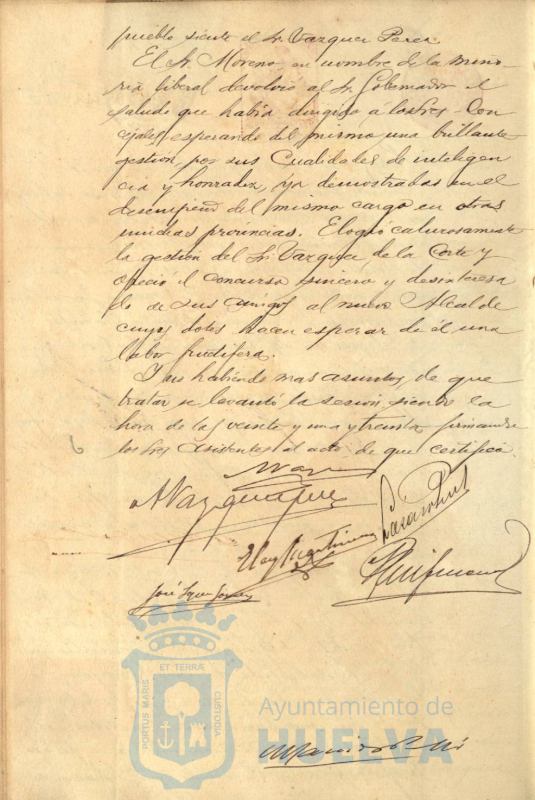 pueblo siente el Sr. Vazquez Perez
El Sr. Moreno en nombre de la mino-
ria liberal devolvió al Sr. Gobernador el
saludo que había dirigido á los Sres. Con
cejales, esperando del mismo una brillante
gestión, por sus Cualidades de inteligen
cia y honradez, ya demostradas en el
desempeño del mismo cargo en otras
muchas provincias. Elogió calurosamente
la gestión del Sr. Vazquez de la Corte y
ofreció el concurso sincero y desinteresa
do de sus amigos al nuevo Alcalde
cuyas dotes hacen esperar de él una
labor fructifera.
Y no habiendo mas asuntos de que
tratar se levantó la sesion siendo la
hora de las veinte y una y treinta firmando
los Sres. asistentes al acto de que certifico.
A Vazquez Perez
José
PORTUS MARIS
ET TERRÆ
CUSTODIA
Ayuntamiento de
HUELVA